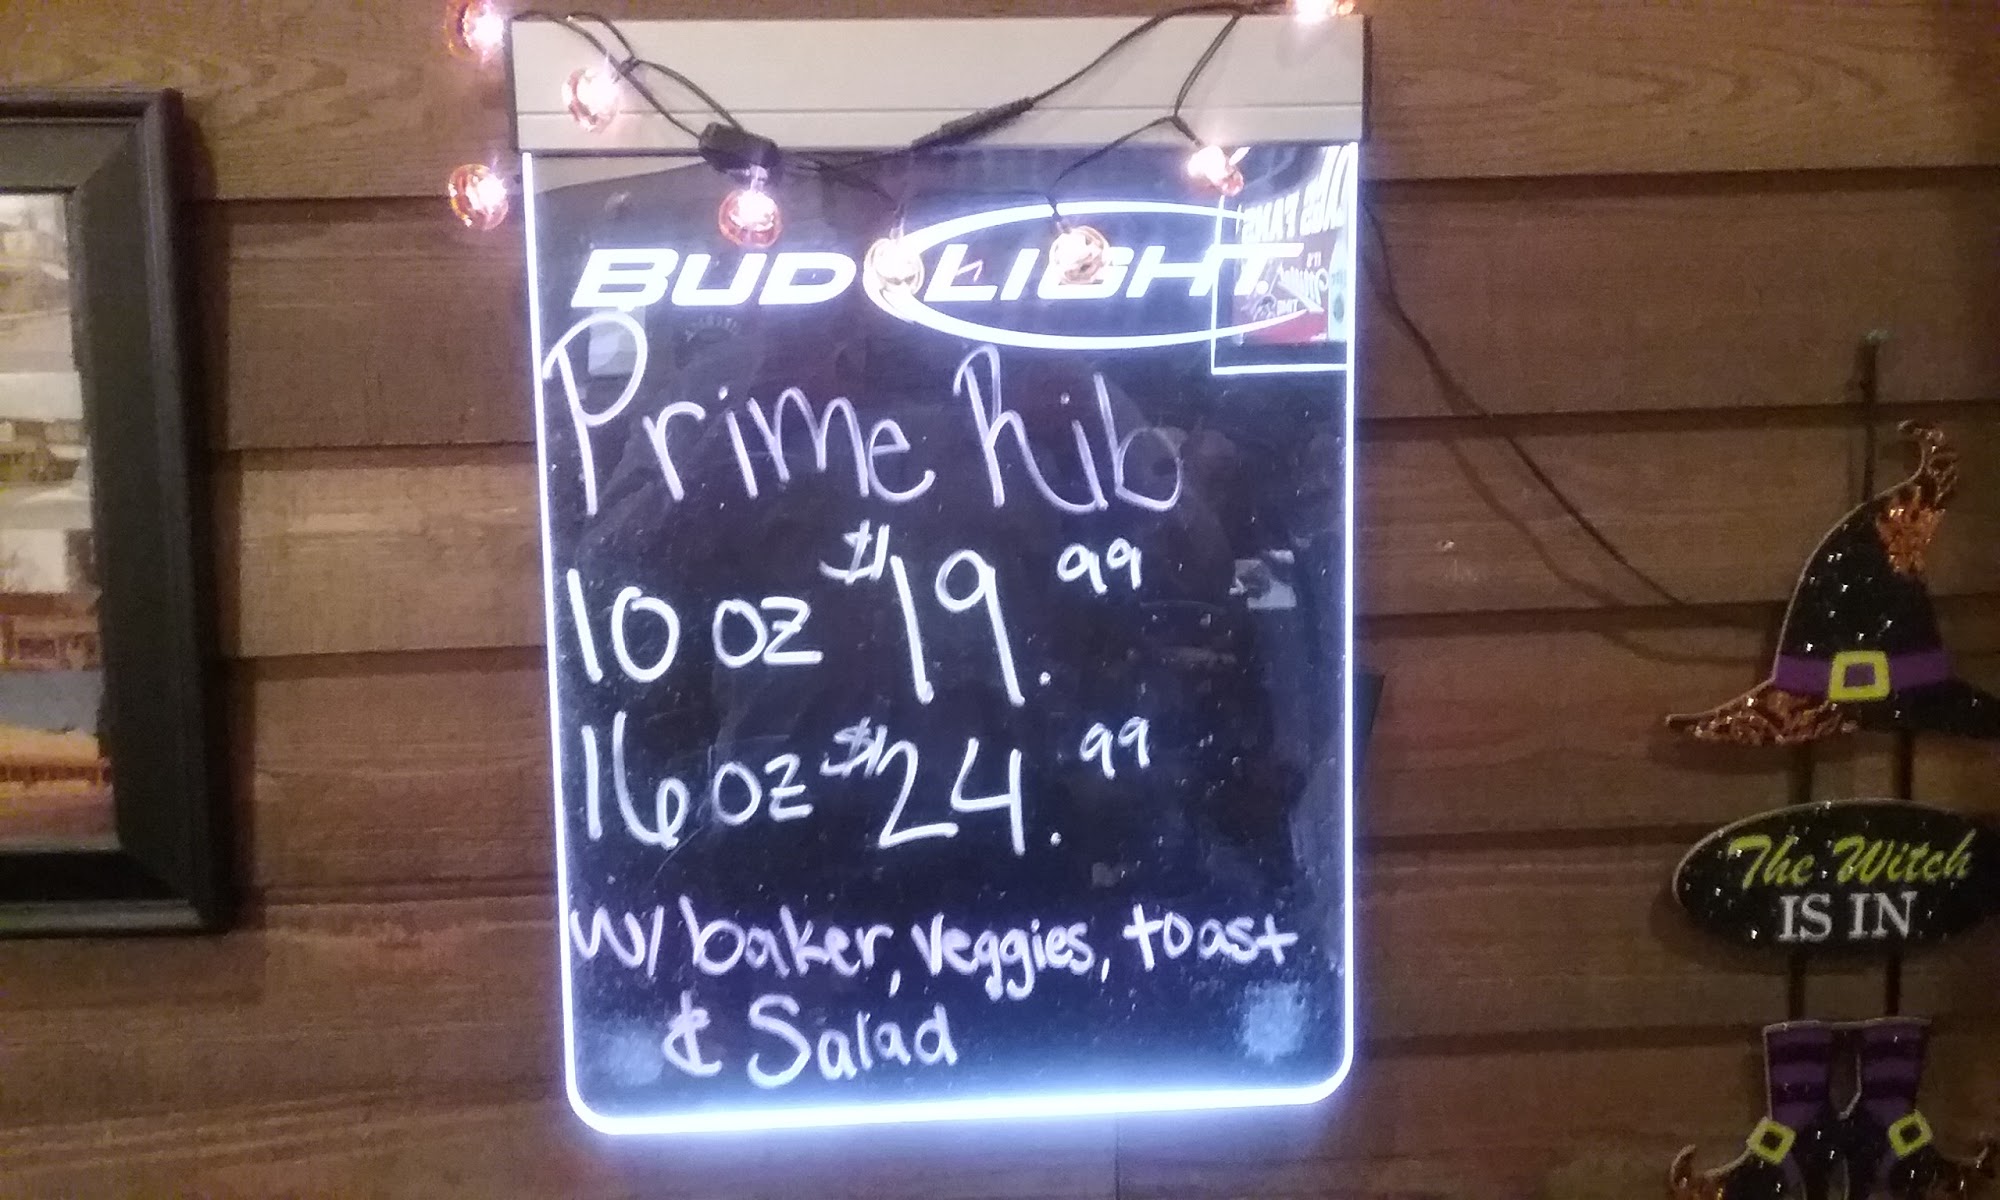 BUD LIGHT
Prime Rib
10 oz $19.99
16 oz $24.99
w/ baker, veggies, toast
& Salad
The Witch
IS IN